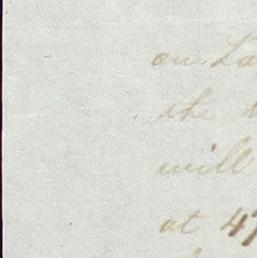 on La
the
will
at 47